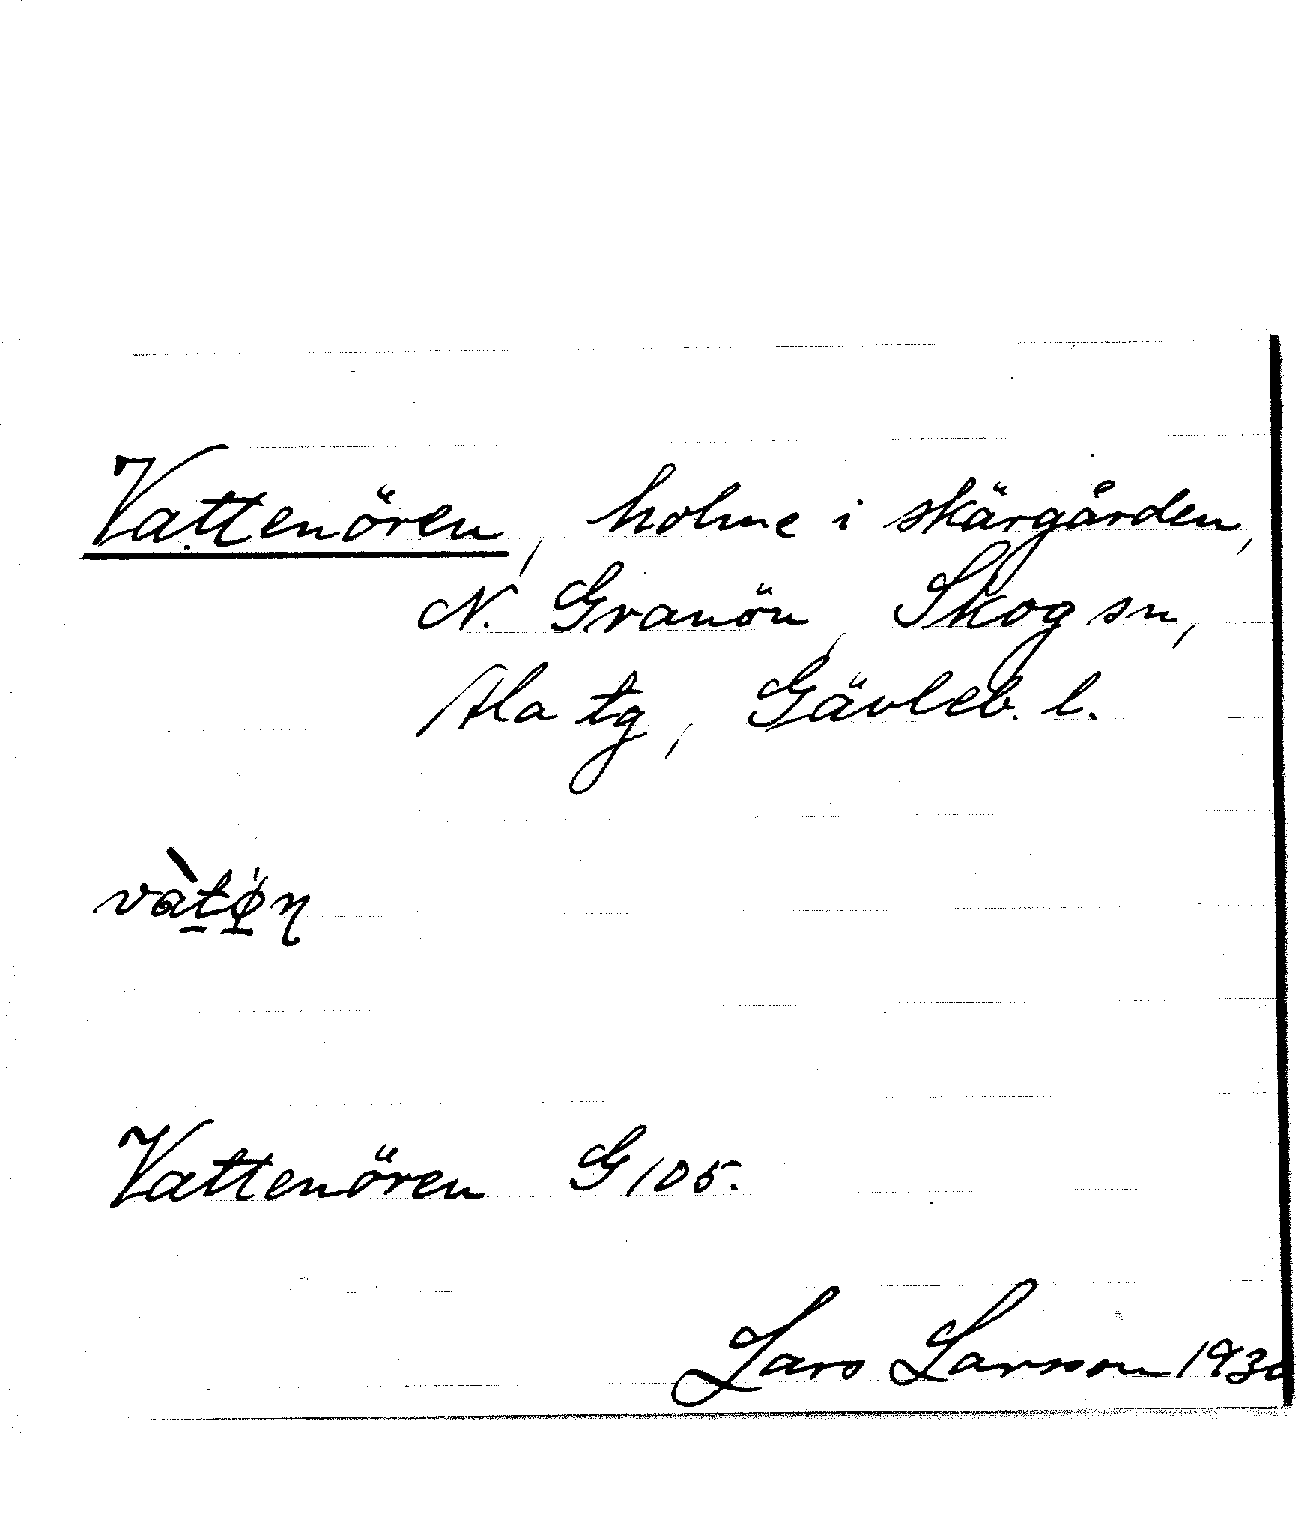 Vattenören, holme i skärgården,
N. Granön, Skog sn,
Ala tg, Gävleb. l.
Vattenören G 105.
Lars Larsson 1930